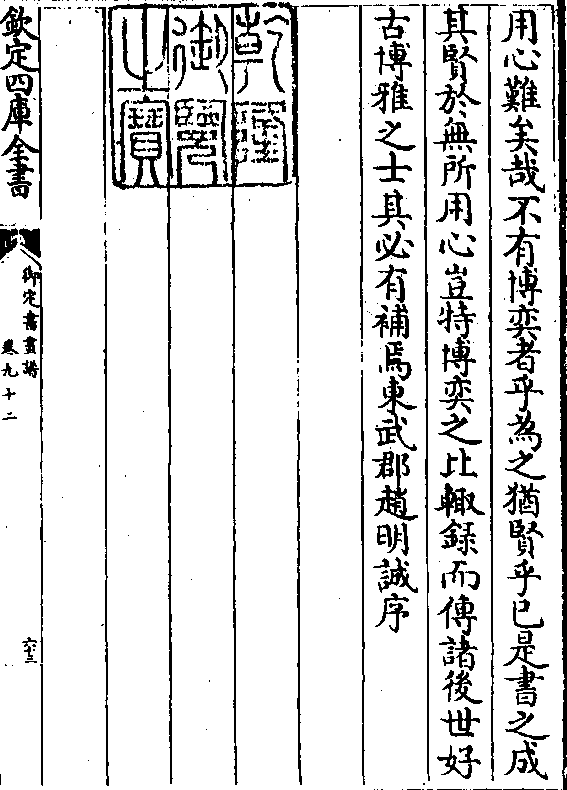 用心難矣哉不有博奕者乎為之猶賢乎已是書之成
其賢於無所用心豈特博奕之比輙録而傳諸後世好
古博雅之士其必有補焉東武郡趙明誠序
乾隆
御覽
之寶
欽定四庫全書
御定書畫譜
卷九十二
六十三